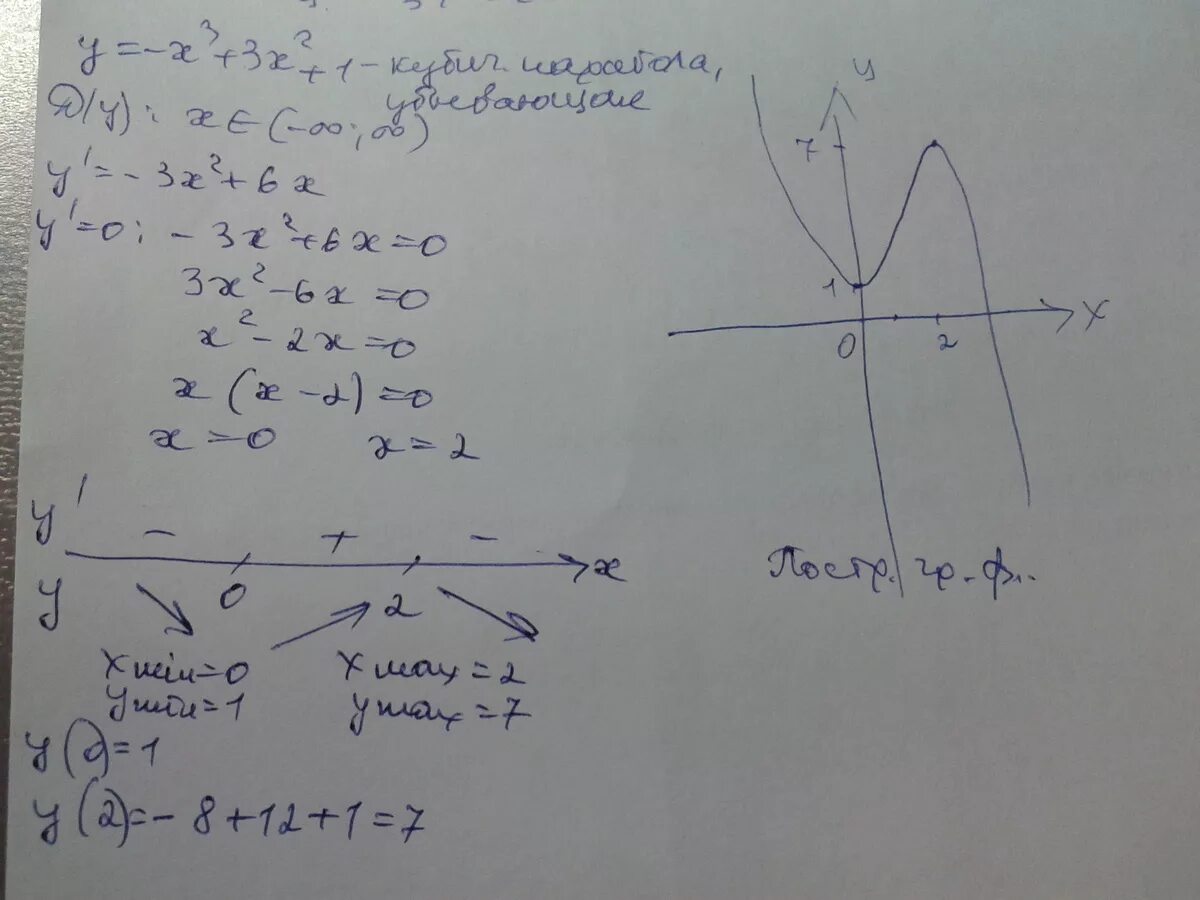 y = -x³ + 3x² + 1 - кубич. парабола,
убывающая
D(y): x ∈ (-∞; ∞)
y' = -3x² + 6x
y' = 0: -3x² + 6x = 0
3x² - 6x = 0
x² - 2x = 0
x (x - 2) = 0
x = 0 x = 2
y' - + - x
y 0 2
x min = 0 x max = 2
y min = 1 y max = 7
y(0) = 1
y(2) = -8 + 12 + 1 = 7
y
7
1
0 2 x
Постр. гр. ф.